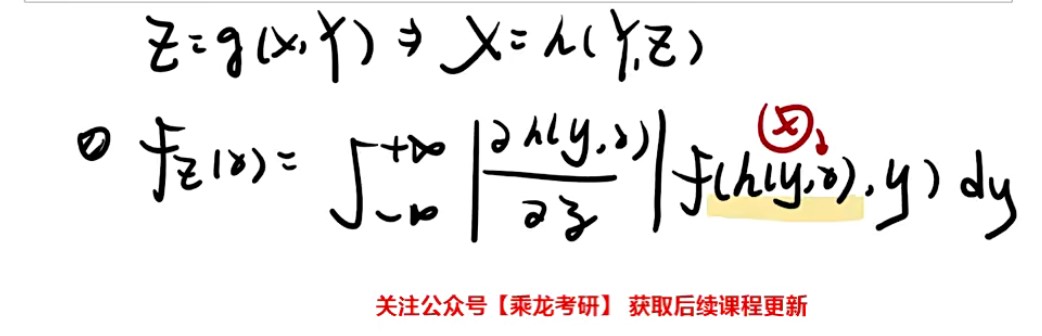 Z=g(X,Y) ⇒ X=h(Y,Z)
① f_Z(z)= ∫_{-∞}^{+∞} |∂h(y,z)/∂z| f(h(y,z),y) dy
x
关注公众号【乘龙考研】 获取后续课程更新